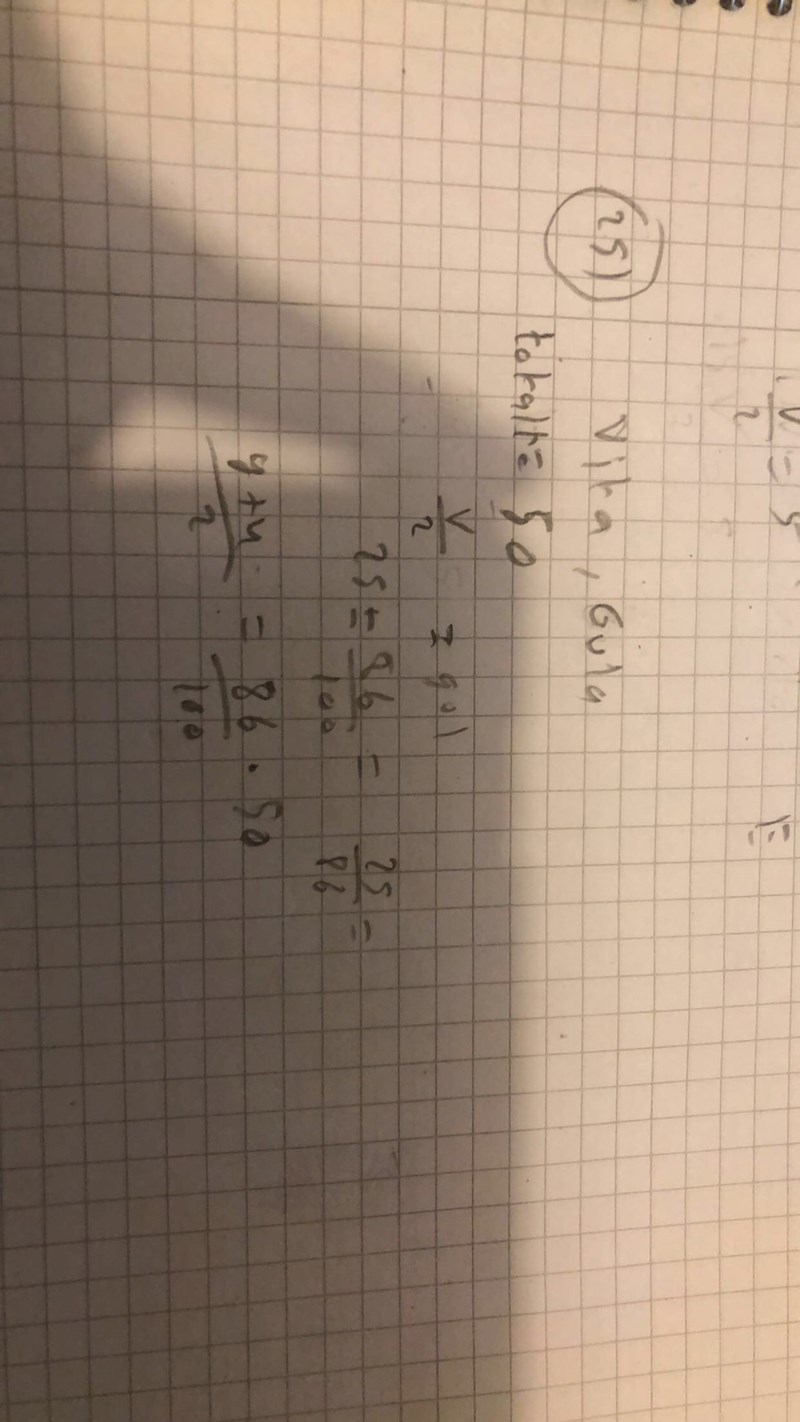 v/2 = 5
251
Vita, Gula
totalt= 50
v/2 = gul
25 = 86/100 = 25/86 =
y+y/2 = 86/100 · 50